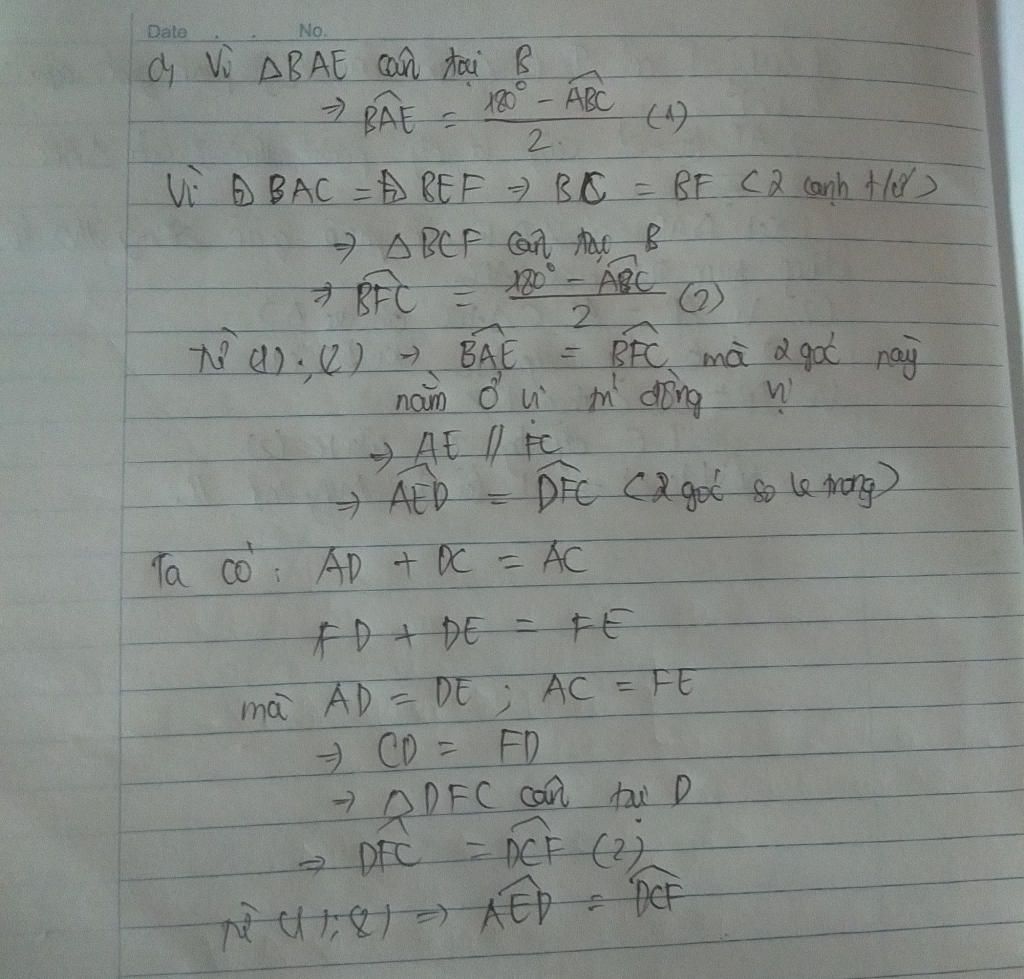 Date . . No.
d, Vì ΔBAE cân tại B
⇒ BAE = 180° - ABC / 2 (1)
Vì Δ BAC = Δ BEF ⇒ BC = BF (2 cạnh t/ứ)
⇒ ΔBCF cân tại B
⇒ BFC = 180° - ABC / 2 (2)
Từ (1); (2) ⇒ BAE = BFC mà 2 góc này
nằm ở vị trí đồng vị
⇒ AE // FC
⇒ AED = DFC (2 góc so le trong)
Ta có: AD + DC = AC
FD + DE = FE
mà AD = DE ; AC = FE
⇒ CD = FD
⇒ ΔDFC cân tại D
⇒ DFC = DCF (2)
Từ (1); (2) ⇒ AED = DCF